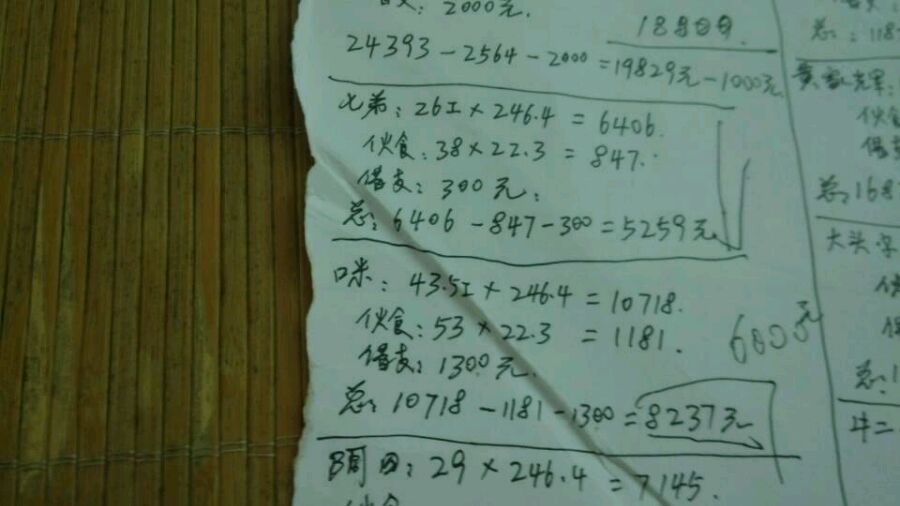 借支：2000元.
18800.
24393-2564-2000=19829元-1000元
兄弟：26工×246.4=6406.
伙食：38×22.3=847.
借支：300元.
总：6406-847-300=5259元
口米：43.5工×246.4=10718.
伙食：53×22.3=1181.
借支：1300元.
6000元
总：10718-1181-1300=8237元
29×246.4=7145.
伙食
总：118
伙食
借支
总：168
大头
总：1
牛二